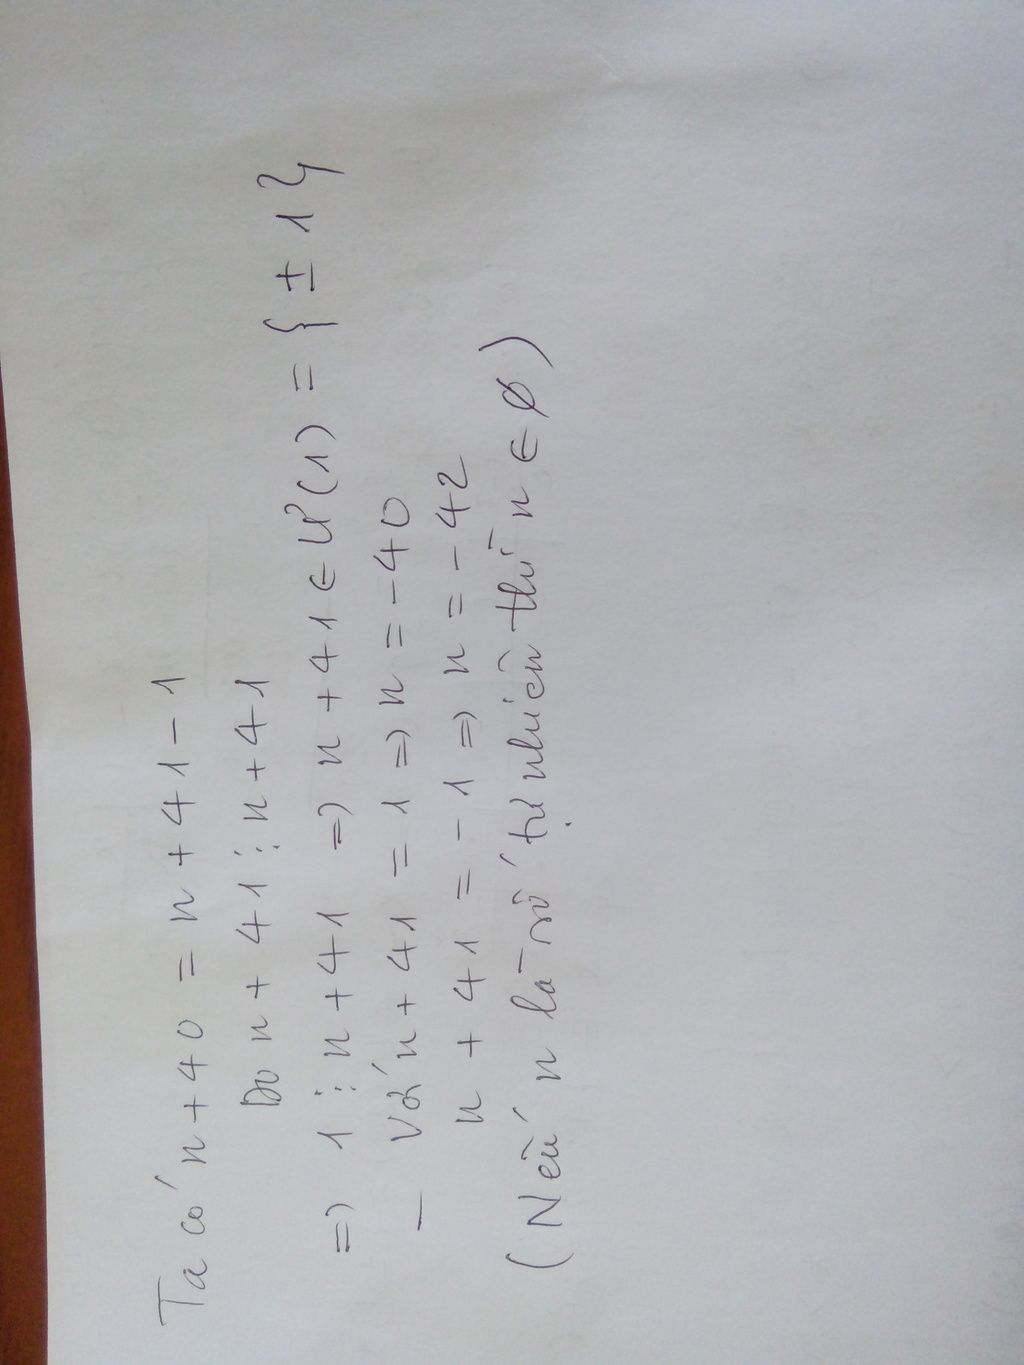 Ta có n + 40 = n + 41 - 1
Do n + 41 ⋮ n + 41
=> 1 ⋮ n + 41 => n + 41 ∈ Ư(1) = { ± 1 }
- Với n + 41 = 1 => n = - 40
n + 41 = - 1 => n = - 42
( Nếu n là số tự nhiên thì n ∈ ∅ )